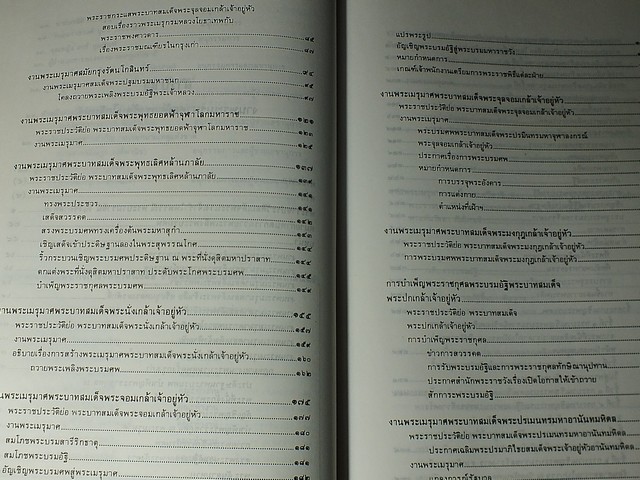 พระราชกระแสพระบาทสมเด็จพระจุลจอมเกล้าเจ้าอยู่หัว
สอบเรื่องราวพระเมรุกรมหลวงโยธาเทพกับ
พระราชพงศาวดาร ๘๕
เรื่องพระราชมณเฑียรในกรุงเก่า ๘๗
งานพระเมรุมาศสมัยกรุงรัตนโกสินทร์ ๙๔
งานพระเมรุมาศสมเด็จพระปฐมบรมมหาชนก ๙๕
โคลงถวายพระเพลิงพระบรมอัฐิพระเจ้าหลวง ๙๗
งานพระเมรุมาศพระบาทสมเด็จพระพุทธยอดฟ้าจุฬาโลกมหาราช ๑๒๑
พระราชประวัติย่อ พระบาทสมเด็จพระพุทธยอดฟ้าจุฬาโลกมหาราช ๑๒๓
งานพระเมรุมาศ ๑๒๕
งานพระเมรุมาศพระบาทสมเด็จพระพุทธเลิศหล้านภาลัย ๑๓๗
พระราชประวัติย่อ พระบาทสมเด็จพระพุทธเลิศหล้านภาลัย ๑๓๙
งานพระเมรุมาศ ๑๔๑
ทรงพระประชวร ๑๔๑
เสด็จสวรรคต ๑๔๒
สรงพระบรมศพทรงเครื่องต้นพระมหาสุกำ ๑๔๓
เชิญเสด็จเข้าประดิษฐานลองในพระสุพรรณโกศ ๑๔๔
ริ้วกระบวนเชิญพระบรมศพประดิษฐาน ณ พระที่นั่งดุสิตมหาปราสาท ๑๔๔
ตกแต่งพระที่นั่งดุสิตมหาปราสาท ประดับพระโกศพระบรมศพ ๑๔๕
บำเพ็ญพระราชกุศลพระบรมศพ ๑๔๙
งานพระเมรุมาศพระบาทสมเด็จพระนั่งเกล้าเจ้าอยู่หัว ๑๕๕
พระราชประวัติย่อ พระบาทสมเด็จพระนั่งเกล้าเจ้าอยู่หัว ๑๕๗
งานพระเมรุมาศ ๑๕๙
อธิบายเรื่องการสร้างพระเมรุมาศพระบาทสมเด็จพระนั่งเกล้าเจ้าอยู่หัว ๑๖๐
ถวายพระเพลิงพระบรมศพ ๑๖๒
งานพระเมรุมาศพระบาทสมเด็จพระจอมเกล้าเจ้าอยู่หัว ๑๗๕
พระราชประวัติย่อ พระบาทสมเด็จพระจอมเกล้าเจ้าอยู่หัว ๑๗๗
งานพระเมรุมาศ ๑๘๐
สมโภชพระบรมสารีริกธาตุ ๑๘๑
สมโภชพระบรมอัฐิ ๑๘๑
อัญเชิญพระบรมศพสู่พระเมรุมาศ ๑๘๒
แปรพระรูป
อัญเชิญพระบรมอัฐิสู่พระบรมมหาราชวัง
หมายกำหนดการ
เกณฑ์เจ้าพนักงานเตรียมการพระราชพิธีแต่ละฝ่าย
งานพระเมรุมาศพระบาทสมเด็จพระจุลจอมเกล้าเจ้าอยู่หัว
พระราชประวัติย่อ พระบาทสมเด็จพระจุลจอมเกล้าเจ้าอยู่หัว
งานพระเมรุมาศ
พระบรมศพพระบาทสมเด็จพระปรมินทรมหาจุฬาลงกรณ์
พระจุลจอมเกล้าเจ้าอยู่หัว
ประกาศเรื่องการพระบรมศพ
หมายกำหนดการ
การบรรจุพระอังคาร
การแต่งกาย
ตำแหน่งที่เฝ้าฯ
งานพระเมรุมาศพระบาทสมเด็จพระมงกุฎเกล้าเจ้าอยู่หัว
พระราชประวัติย่อ พระบาทสมเด็จพระมงกุฎเกล้าเจ้าอยู่หัว
การพระบรมศพพระบาทสมเด็จพระมงกุฎเกล้าเจ้าอยู่หัว
การบำเพ็ญพระราชกุศลพระบรมอัฐิพระบาทสมเด็จ
พระปกเกล้าเจ้าอยู่หัว
พระราชประวัติย่อ พระบาทสมเด็จ
พระปกเกล้าเจ้าอยู่หัว
การบำเพ็ญพระราชกุศล
ข่าวการสวรรคต
การรับพระบรมอัฐิและการพระราชกุศลทักษิณานุปทาน
ประกาศสำนักพระราชวังเรื่องเปิดโอกาสให้เข้าถวาย
สักการะพระบรมอัฐิ
งานพระเมรุมาศพระบาทสมเด็จพระปรเมนทรมหาอานันทมหิดล
พระราชประวัติย่อ พระบาทสมเด็จพระปรเมนทรมหาอานันทมหิดล
ประกาศเฉลิมพระปรมาภิไธยสมเด็จพระเจ้าอยู่หัวอานันทมหิดล
งานพระเมรุมาศ
แถลงการณ์รัฐบาล